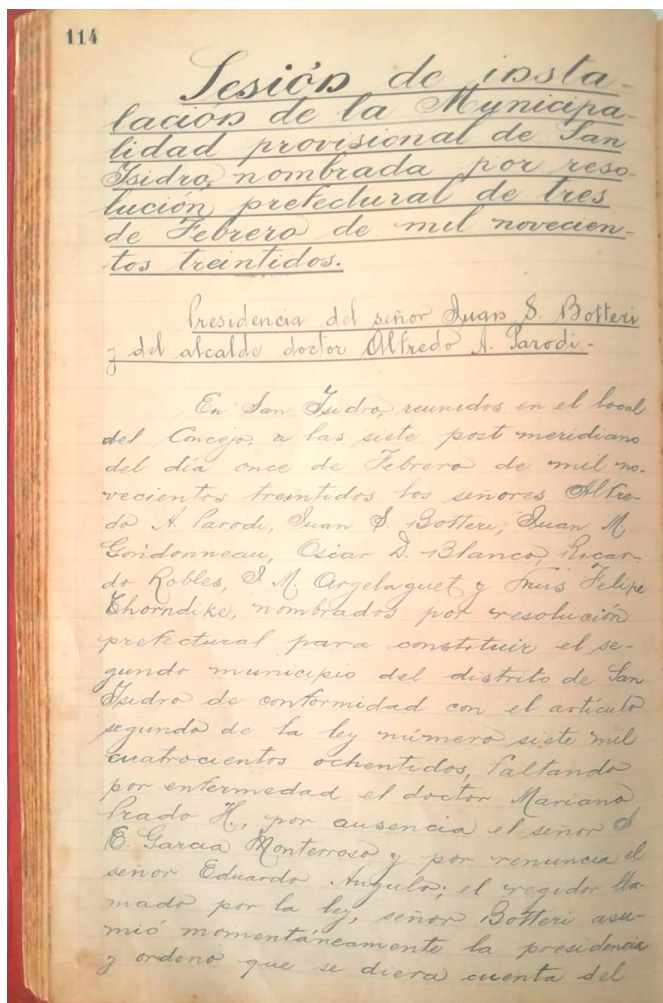 114
Sesión de insta-
lación de la Municipa-
lidad provisional de San
Isidro, nombrada por reso-
lución prefectural de tres
de Febrero de mil novecien-
tos treintidos.
Presidencia del señor Juan S. Botteri
y del alcalde doctor Alfredo A. Parodi.-
En San Isidro, reunidos en el local
del Concejo, a las siete post meridiano
del día once de Febrero de mil no-
vecientos treintidos los señores Alfre-
do A. Parodi, Juan S. Botteri, Juan M.
Gondonneau, Oscar D. Blanco, Ricar-
do Robles, J. M. Argelaguet y Luis Felipe
Thorndike, nombrados por resolución
prefectural para constituir el se-
gundo municipio del distrito de San
Isidro de conformidad con el artículo
segundo de la ley número siete mil
cuatrocientos ochentidos, faltando
por enfermedad el doctor Mariano
Prado H., por ausencia el señor
E. Garcia Monterroso y por renuncia el
señor Eduardo Angulo; el regidor lla-
mado por la ley, señor Botteri asu-
mió momentáneamente la presidencia
y ordeno que se diera cuenta del